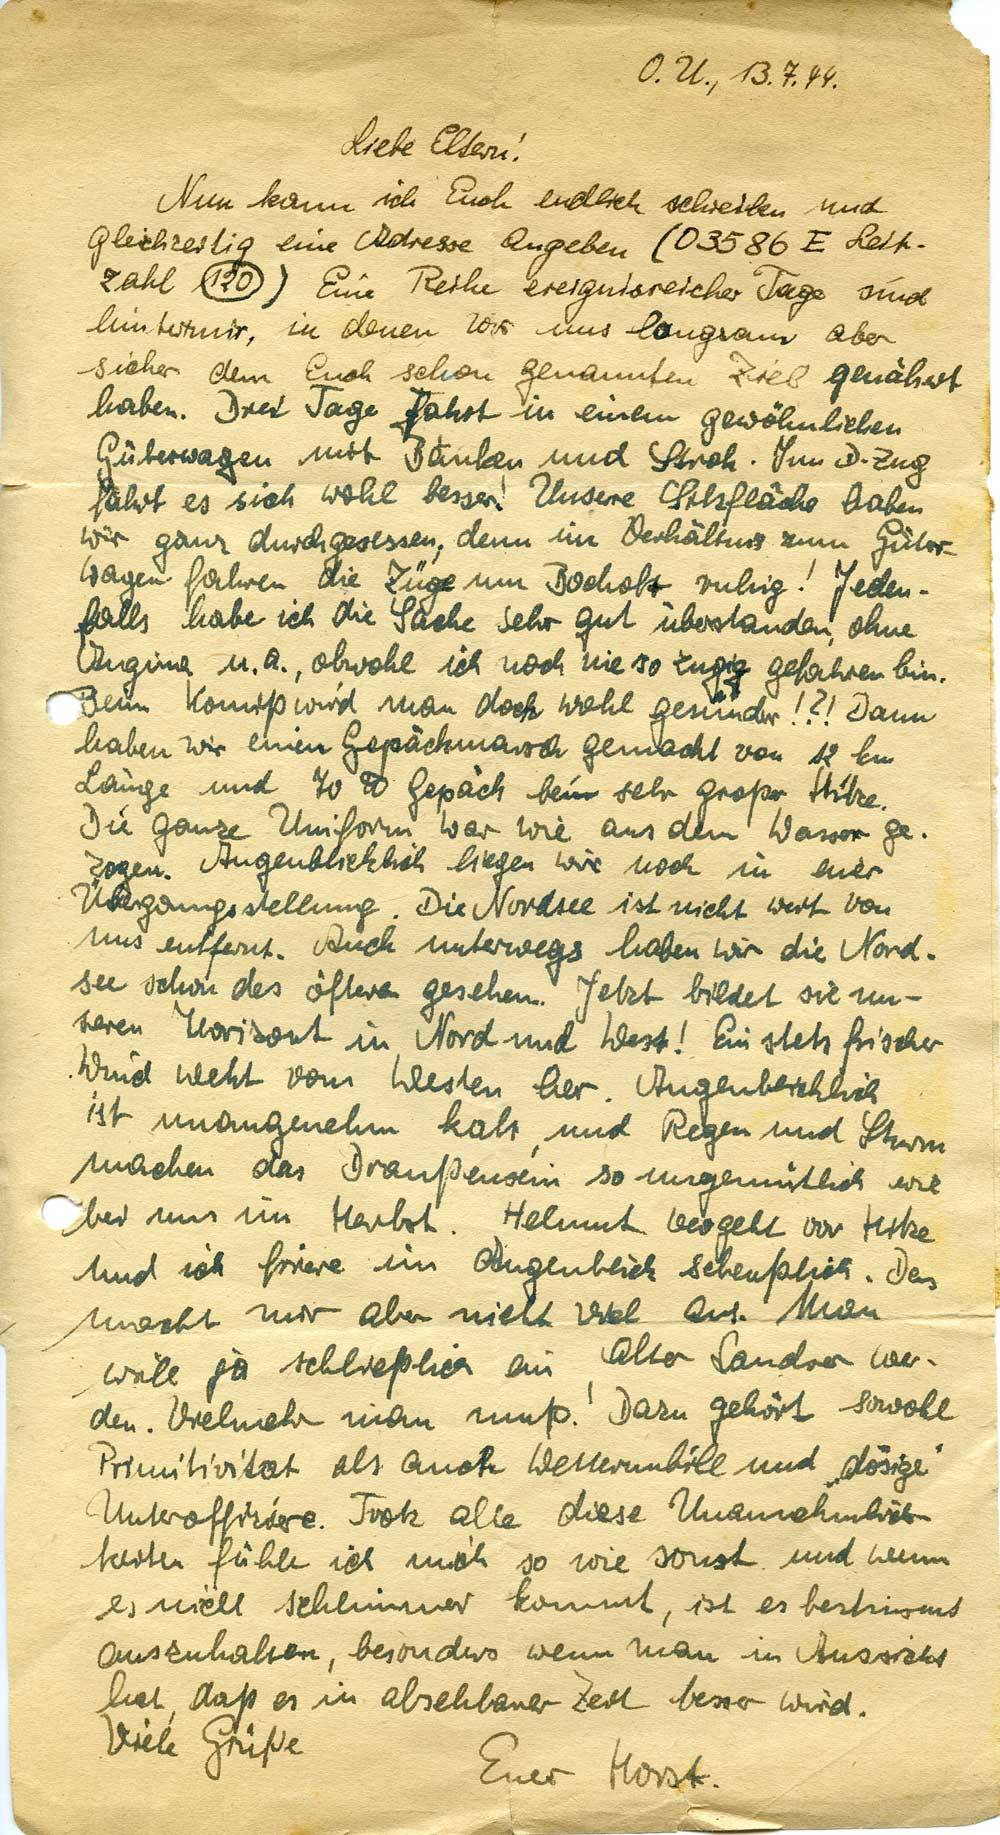 O. U., 13.7.44.
Liebe Eltern!
Nun kann ich Euch endlich schreiben und
gleichzeitig eine Adresse angeben (03586 E Leit-
zahl 120) Eine Reihe ereignisreicher Tage sind
hinter mir, in denen wir uns langsam aber
sicher dem Euch schon genannten Ziel genähert
haben. Drei Tage Fahrt in einem gewöhnlichen
Güterwagen mit Bänken und Stroh. Im D-Zug
fährt es sich wohl besser! Unsere Sitzfläche haben
wir ganz durchgesessen, denn im Verhältnis zum Güter-
wagen fahren die Züge um Bocholt ruhig! Jeden-
falls habe ich die Sache sehr gut überstanden, ohne
Angina u.a., obwohl ich noch nie so zugig gefahren bin.
Beim Komiß wird man doch wohl gesünder!?! Dann
haben wir einen Gepäckmarsch gemacht von 12 km
Länge und 70 ℔ Gepäck bei sehr großer Hitze.
Die ganze Uniform war wie aus dem Wasser ge-
zogen. Augenblicklich liegen wir noch in einer
Übergangsstellung. Die Nordsee ist nicht weit von
uns entfernt. Auch unterwegs haben wir die Nord-
see schon des öfteren gesehen. Jetzt bildet sie un-
seren Horizont in Nord und West! Ein stets frischer
Wind weht vom Westen her. Augenblicklich
ist unangenehm kalt, und Regen und Sturm
machen das Draußensein so ungemütlich wie
bei uns im Herbst. Helmut vergeht vor Hitze
und ich friere im Augenblick scheußlich. Das
macht mir aber nicht viel aus. Man
will ja schließlich ein alter Landser wer-
den. Vielmehr man muß! Dazu gehört sowohl
Primitivität als auch Wetterunbill und „dösige"
Unteroffiziere. Trotz alle diese Unannehmlich-
keiten fühle ich mich so wie sonst und wenn
es nicht schlimmer kommt, ist es bestimmt
auszuhalten, besonders wenn man in Aussicht
hat, daß es in absehbarer Zeit besser wird.
Viele Grüße
Euer Horst.